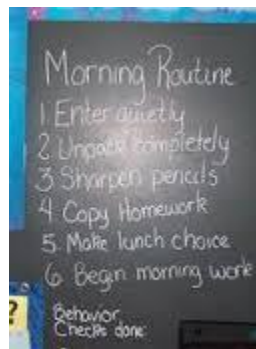 Morning Routine
1 Enter quietly
2 Unpack completely
3 Sharpen pencils
4 Copy Homework
5. Make lunch choice
6. Begin morning work
?
Behavior
Checks done: